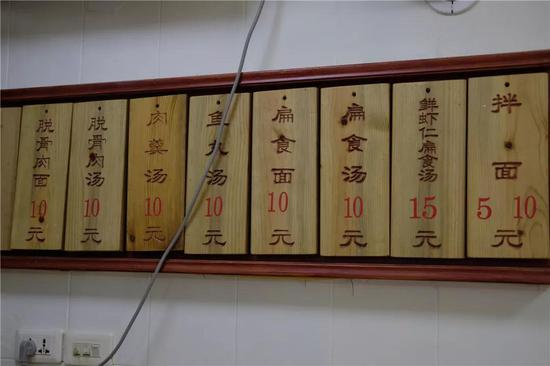 脱骨肉面
10
元
脱骨肉汤
10
元
肉羹汤
10
元
鱼丸汤
10
元
扁食面
10
元
扁食汤
10
元
鲜虾仁扁食汤
15
元
拌面
5 10
元